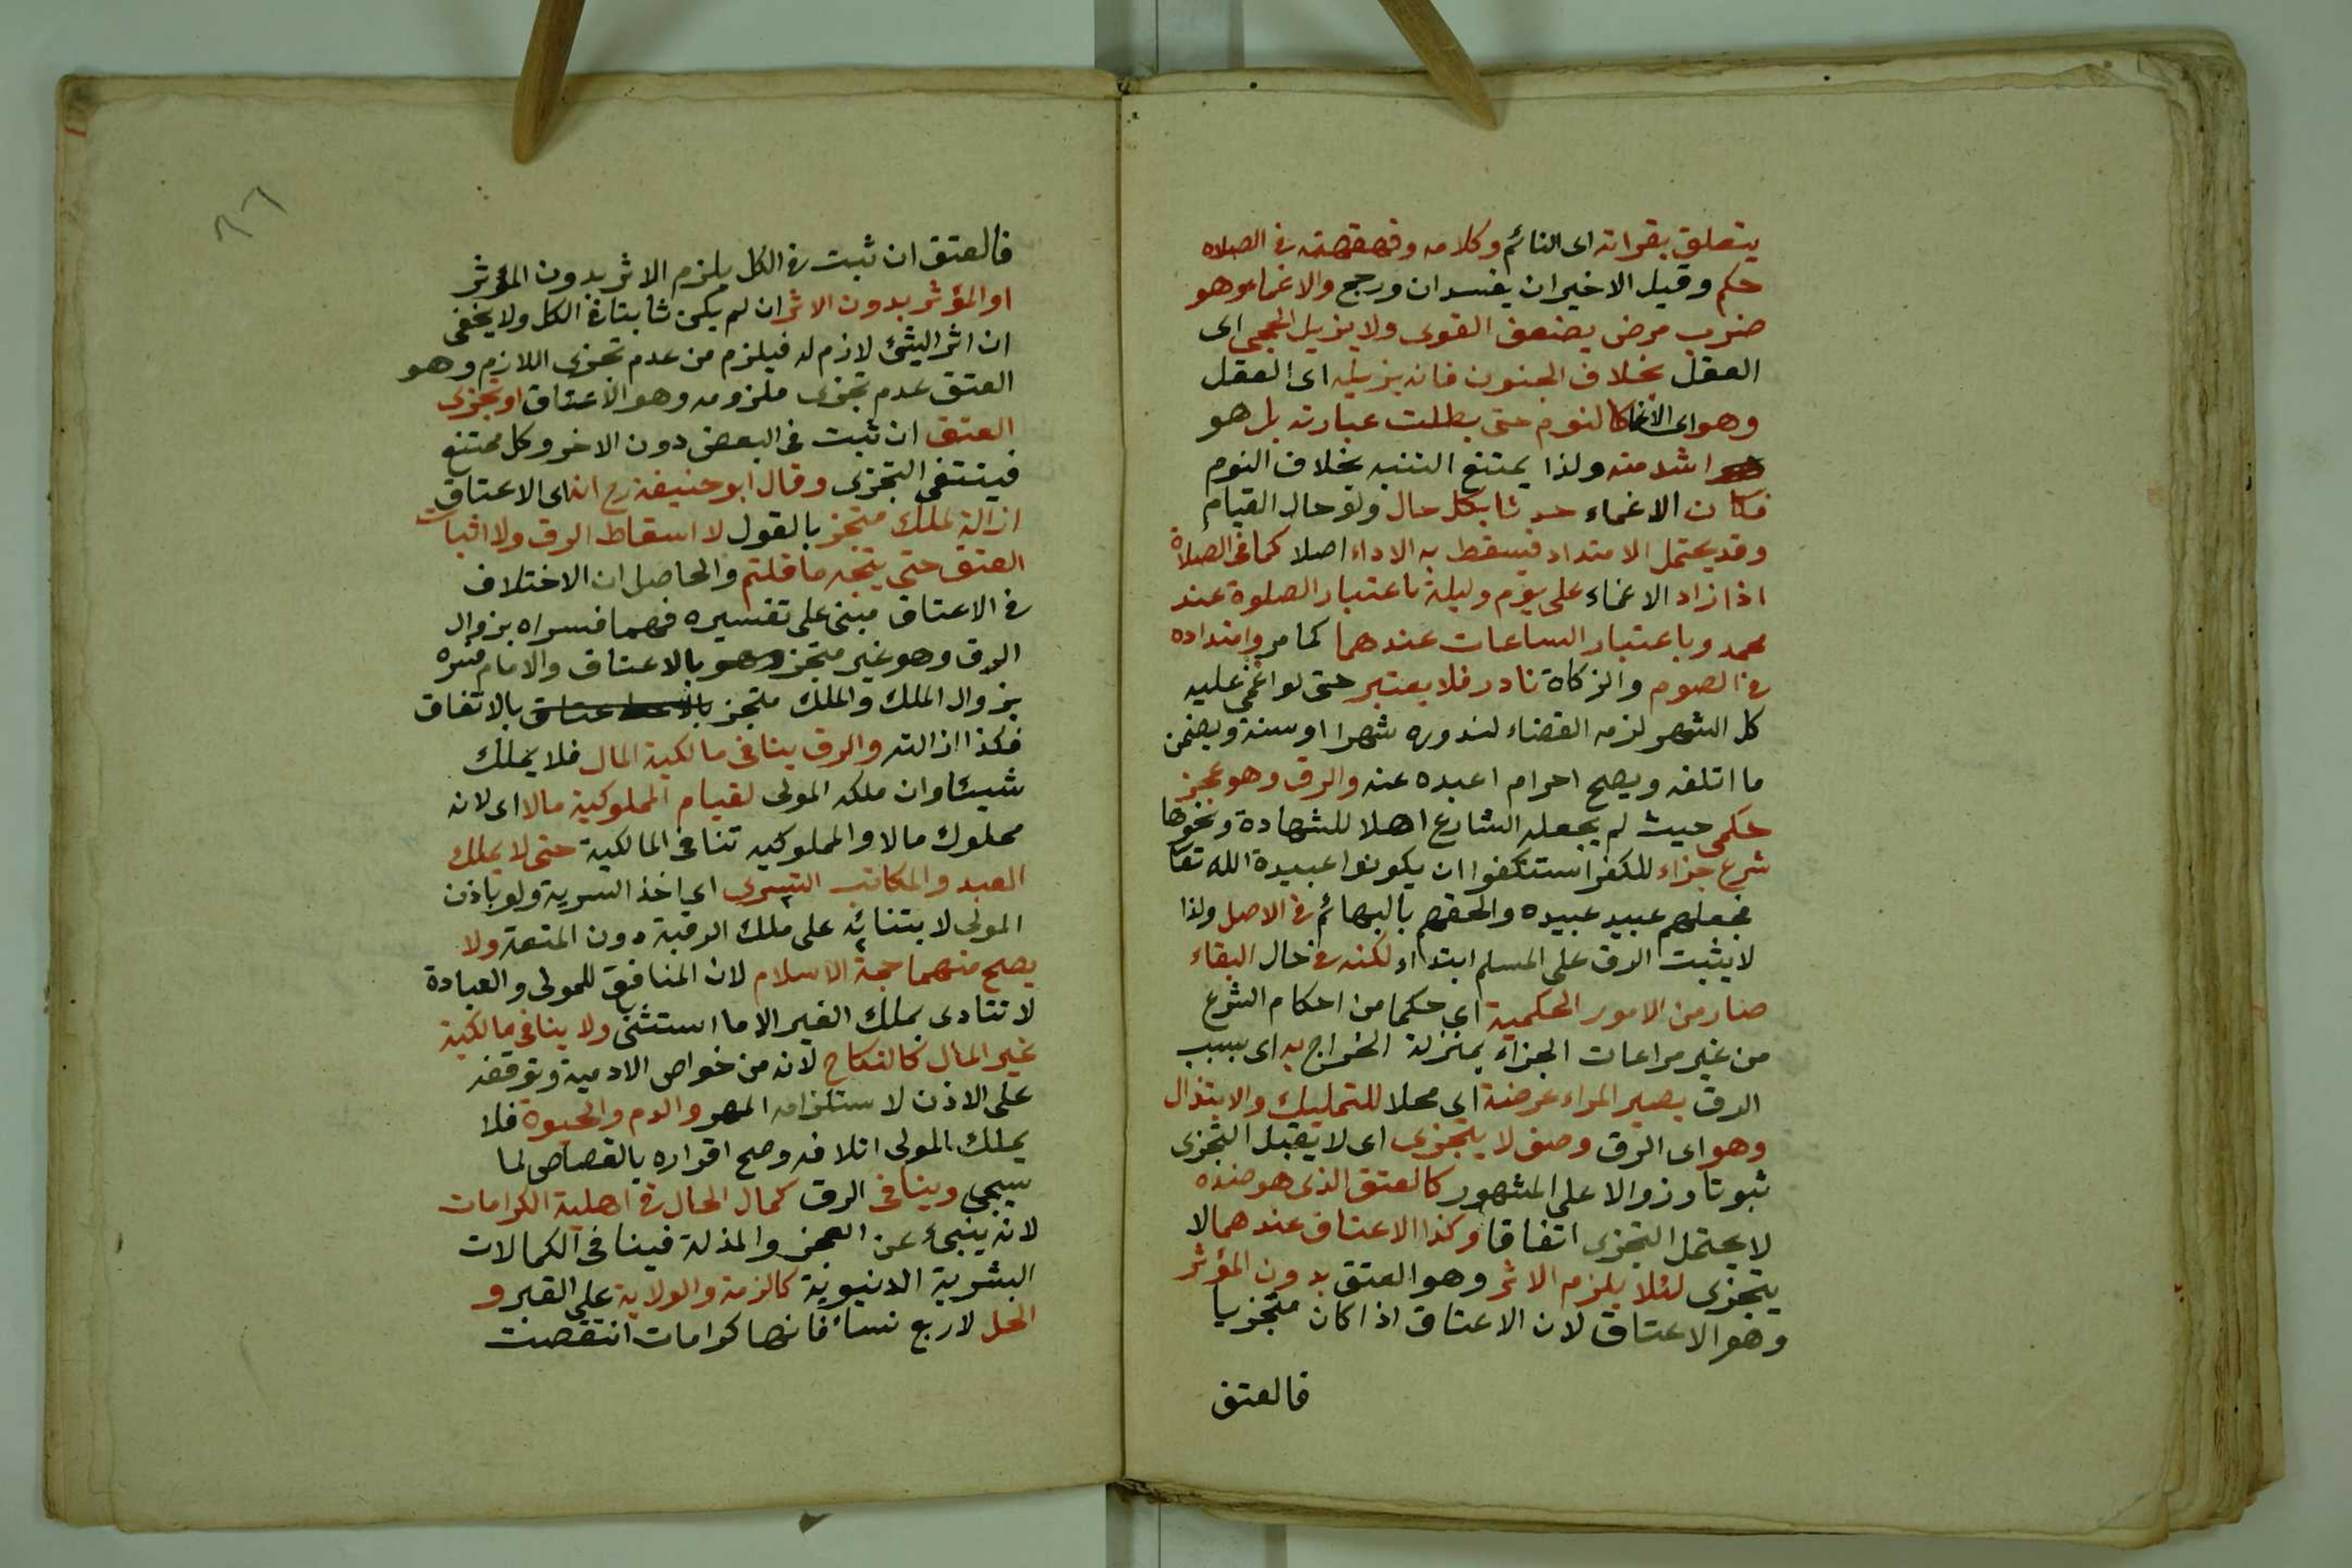 يتعلق بقراته اى النائم وكلامه وقهقهته فى الصلاه
حكم وقيل الاخيران يفسدان ورجح والاغماء وهو
ضرب مرض يضعف القوى ولا يزيل الحجى اى
العقل بخلاف الجنون فانه يزيله اى العقل
وهو اى الاغما كالنوم حتى بطلت عبارته بل هو
اشد منه ولذا يمتنع التنبه بخلاف النوم
فكان الاغماء حدثا بكل حال ولو حال القيام
وقد يحتمل الامتداد فيسقط به الاداء اصلا كما فى الصلاة
اذا زاد الاغماء على يوم وليلة باعتبار الصلوة عند
محمد وباعتبار الساعات عندهما كما مر وامتداده
فى الصوم والزكاة نادر فلا يعتبر حتى لو اغمى عليه
كل الشهر لزمه القضاء لندوره شهرا او سنة ويضمن
ما اتلفه ويصح احرام اعبده عنه والرق وهو عجز
حكمى حيث لم يجعله الشارع اهلا للشهادة ونحوها
شرع جزاء للكفر استنكفوا ان يكونوا عبيدة الله تعا
فجعلهم عبيد عبيده والحقهم بالبهائم فى الاصل ولذا
لا يثبت الرق على المسلم ابتداء لكنه فى حال البقاء
صار من الامور الحكمية اى حكما من احكام الشرع
من غير مراعات الجزاء بمنزلة الخراج به اى بسبب
الرق يصير المراء عرضة اى محلا للتمليك والابتذال
وهو اى الرق وصف لا يتجزى اى لا يقبل التجزى
ثبوتا وزوالا على المشهور كالعتق الذى هو ضده
لا يحتمل التجزى اتفاقا وكذا الاعتاق عندهما لا
يتجزى لئلا يلزم الاثر وهو العتق بدون المؤثر
وهو الاعتاق لان الاعتاق اذا كان متجزيا
فالعتق
٨٦
فالعتق ان ثبت فى الكل يلزم الاثر بدون المؤثر
او المؤثر بدون الاثر ان لم يكن ثابتا فى الكل ولا يخفى
ان اثر الشئ لازم له فيلزم من عدم تجزى اللازم وهو
العتق عدم تجزى ملزومه وهو الاعتاق او تجزى
العتق ان ثبت فى البعض دون الاخر وكل ممتنع
فينتفى التجزى وقال ابو حنيفة رح انه اى الاعتاق
ازالة لملك متجز بالقول لا اسقاط الرق ولا اثبات
العتق حتى يتجه ما قلتم والحاصل ان الاختلاف
فى الاعتاق مبنى على تفسيره فهما فسراه بزوال
الرق وهو غير متجز وهو بالاعتاق والامام فسره
بزوال الملك والملك متجز بالاتفاق
فكذا ازالته والرق ينافى مالكية المال فلا يملك
شيئا وان ملكه المولى لقيام المملوكية مالا اى لانه
مملوك مالا والمملوكيه تنافى المالكية حتى لا يملك
العبد والمكاتب التسرى اى اخذ السرية ولو باذن
المولى لابتنائه على ملك الرقبة دون المتعة ولا
يصح منهما حجة الاسلام لان المنافع للمولى والعبادة
لا تتادى بملك الغير الا ما استثنى ولا ينافى مالكية
غير المال كالنكاح لانه من خواص الادمية وتوقفه
على الاذن لاستلزامه المهر والدم والحيوة فلا
يملك المولى اتلافه وصح اقراره بالقصاص لما
سيجى وينافى الرق كمال الحال فى اهلية الكرامات
لانه ينبئ عن العجز والمذلة فينافى الكمالات
البشرية الدنيوية كالذمة والولاية على الغير و
الحل لاربع نساء فانها كرامات انتقصت